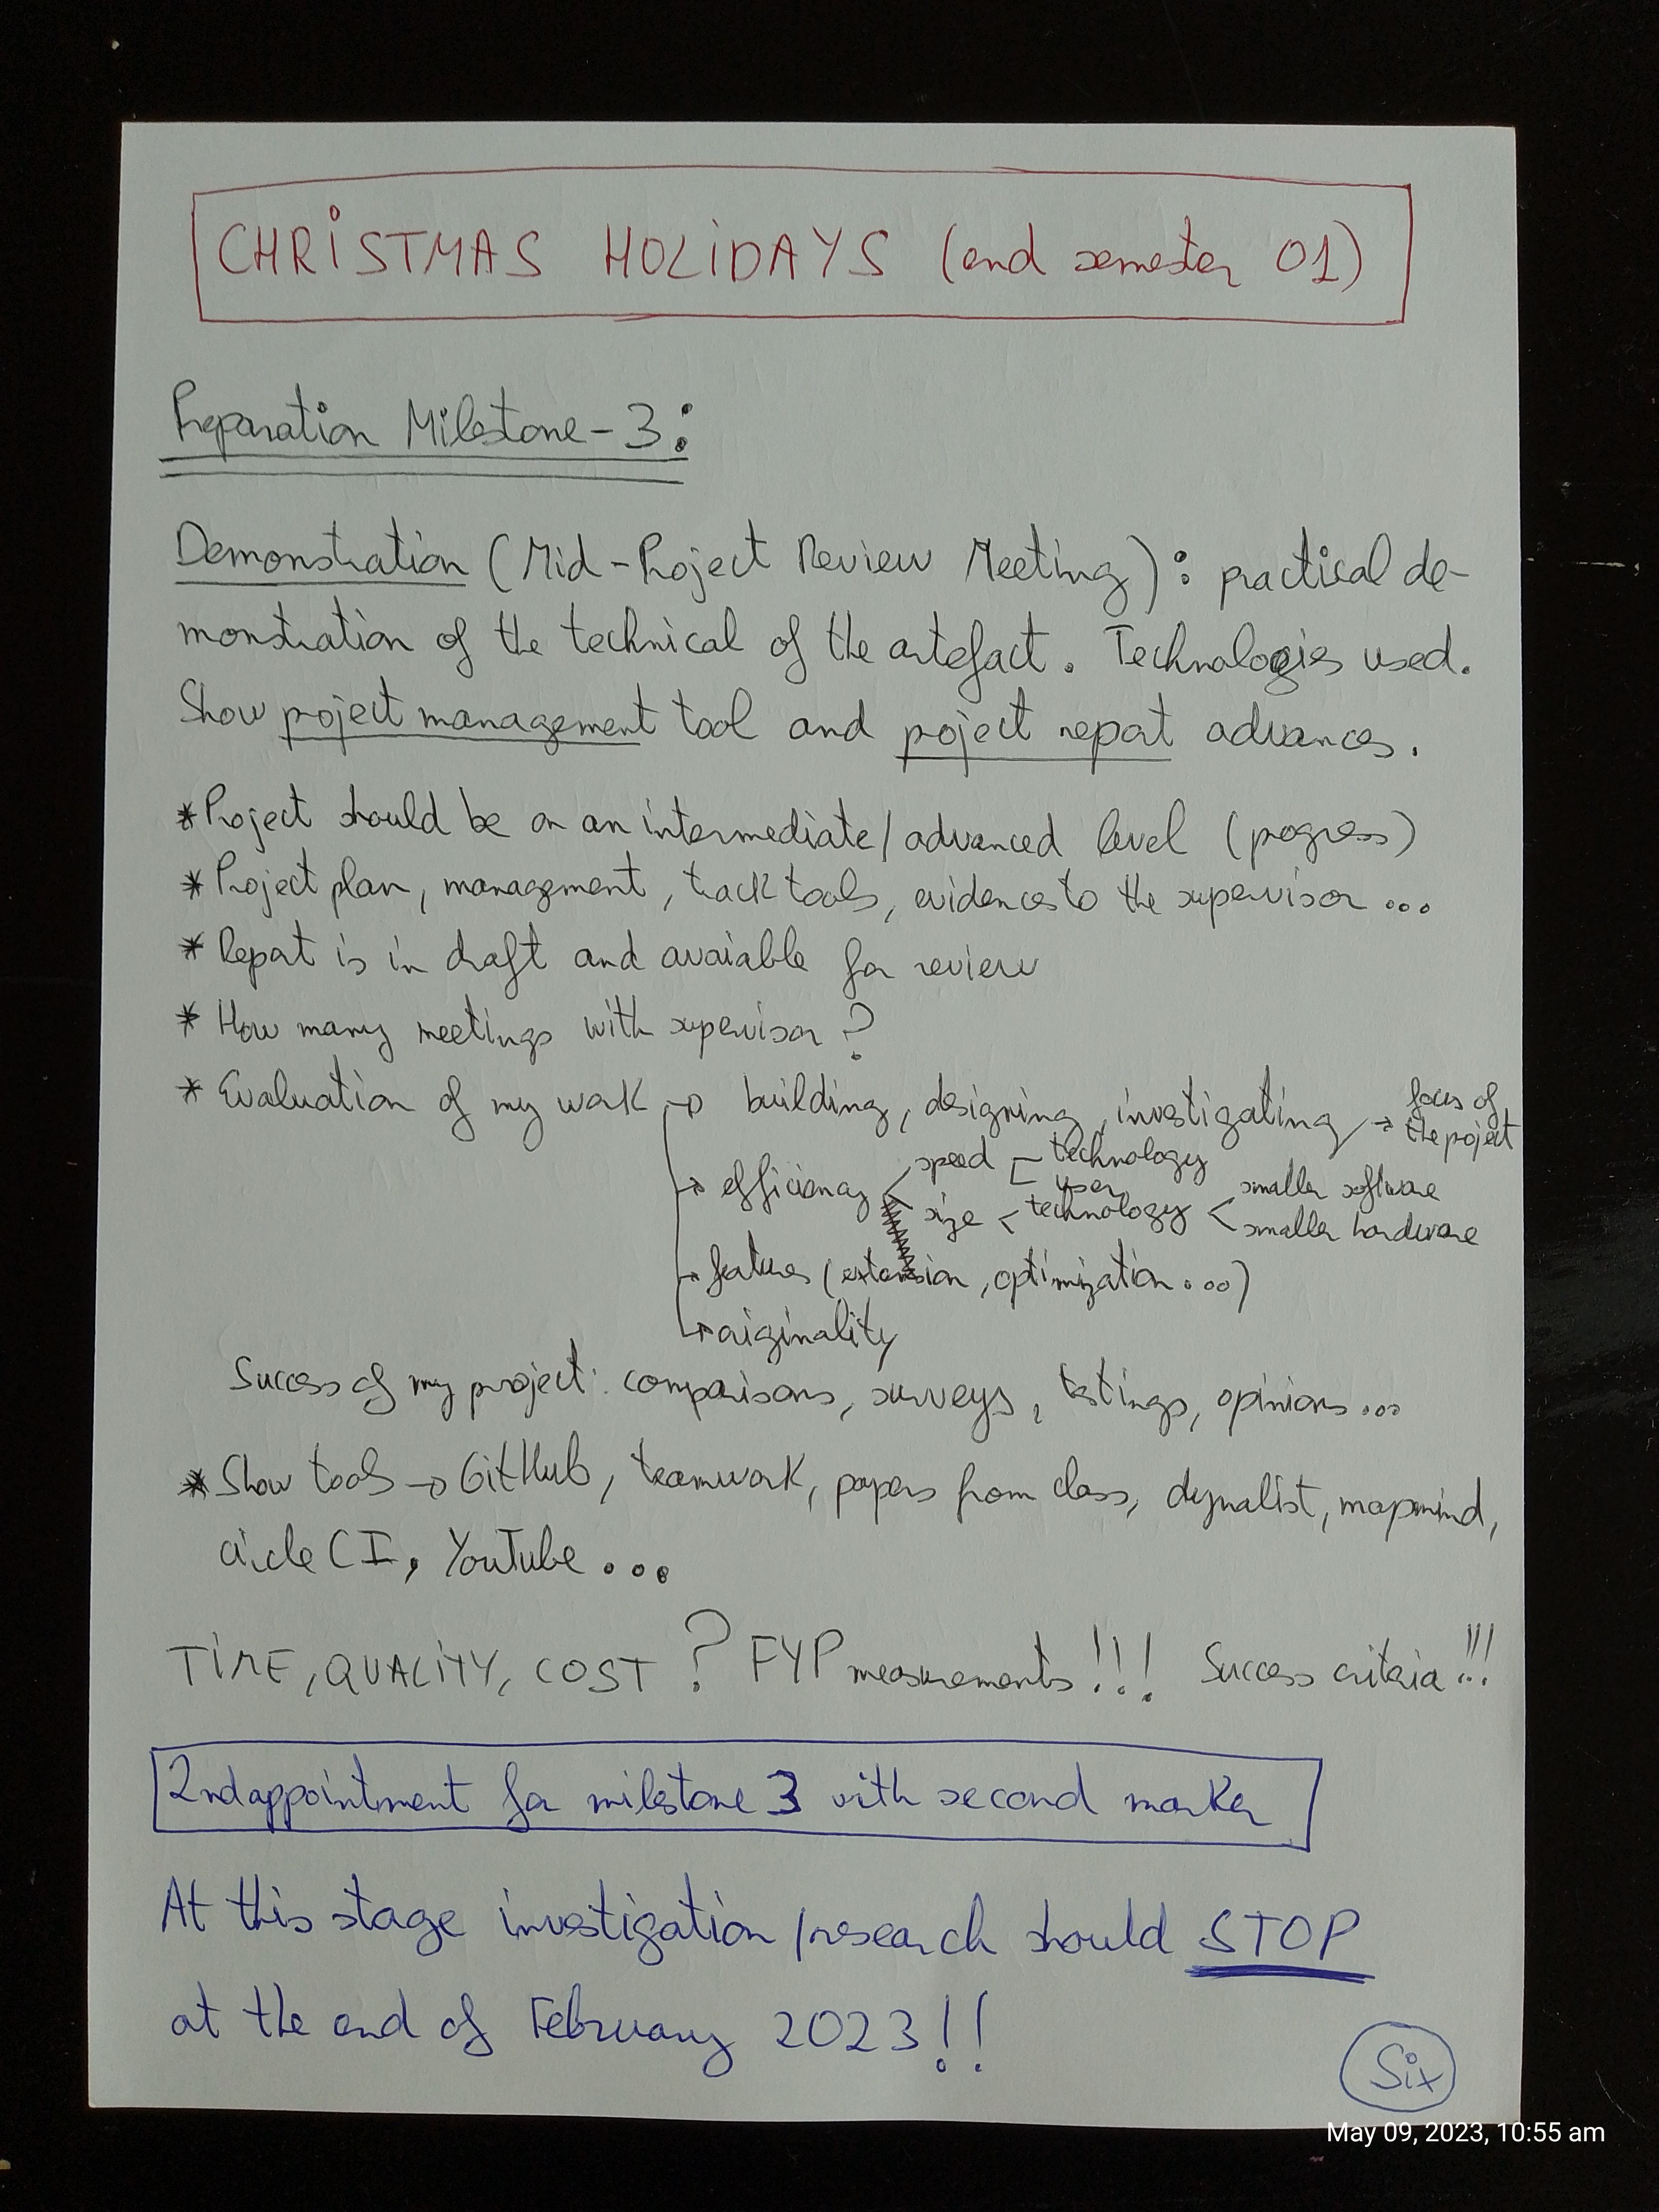 CHRISTMAS HOLIDAYS (end semester 01)
Preparation Milestone-3:
Demonstration (Mid-Project Review Meeting): practical de-
monstration of the technical of the artefact. Technologies used.
Show project management tool and project report advances.
* Project should be on an intermediate/advanced level (progress)
* Project plan, management, track tools, evidences to the supervisor...
* Report is in draft and avaiable for review
* How many meetings with supervisor?
* Evaluation of my work → building, designing, investigating → focus of
the project
→ efficiency < speed [ technology
user
size < technology < smaller software
smaller hardware
→ features (extension, optimization...)
→ originality
Success of my project: comparisons, surveys, testings, opinions...
* Show tools → GitHub, teamwork, papers from class, dynalist, mapmind,
circle CI, YouTube...
TIME, QUALITY, COST? FYP measurements!!! Success criteria!!!
2nd appointment for milestone 3 with second marker
At this stage investigation/research should STOP
at the end of February 2023!!
Six
May 09, 2023, 10:55 am